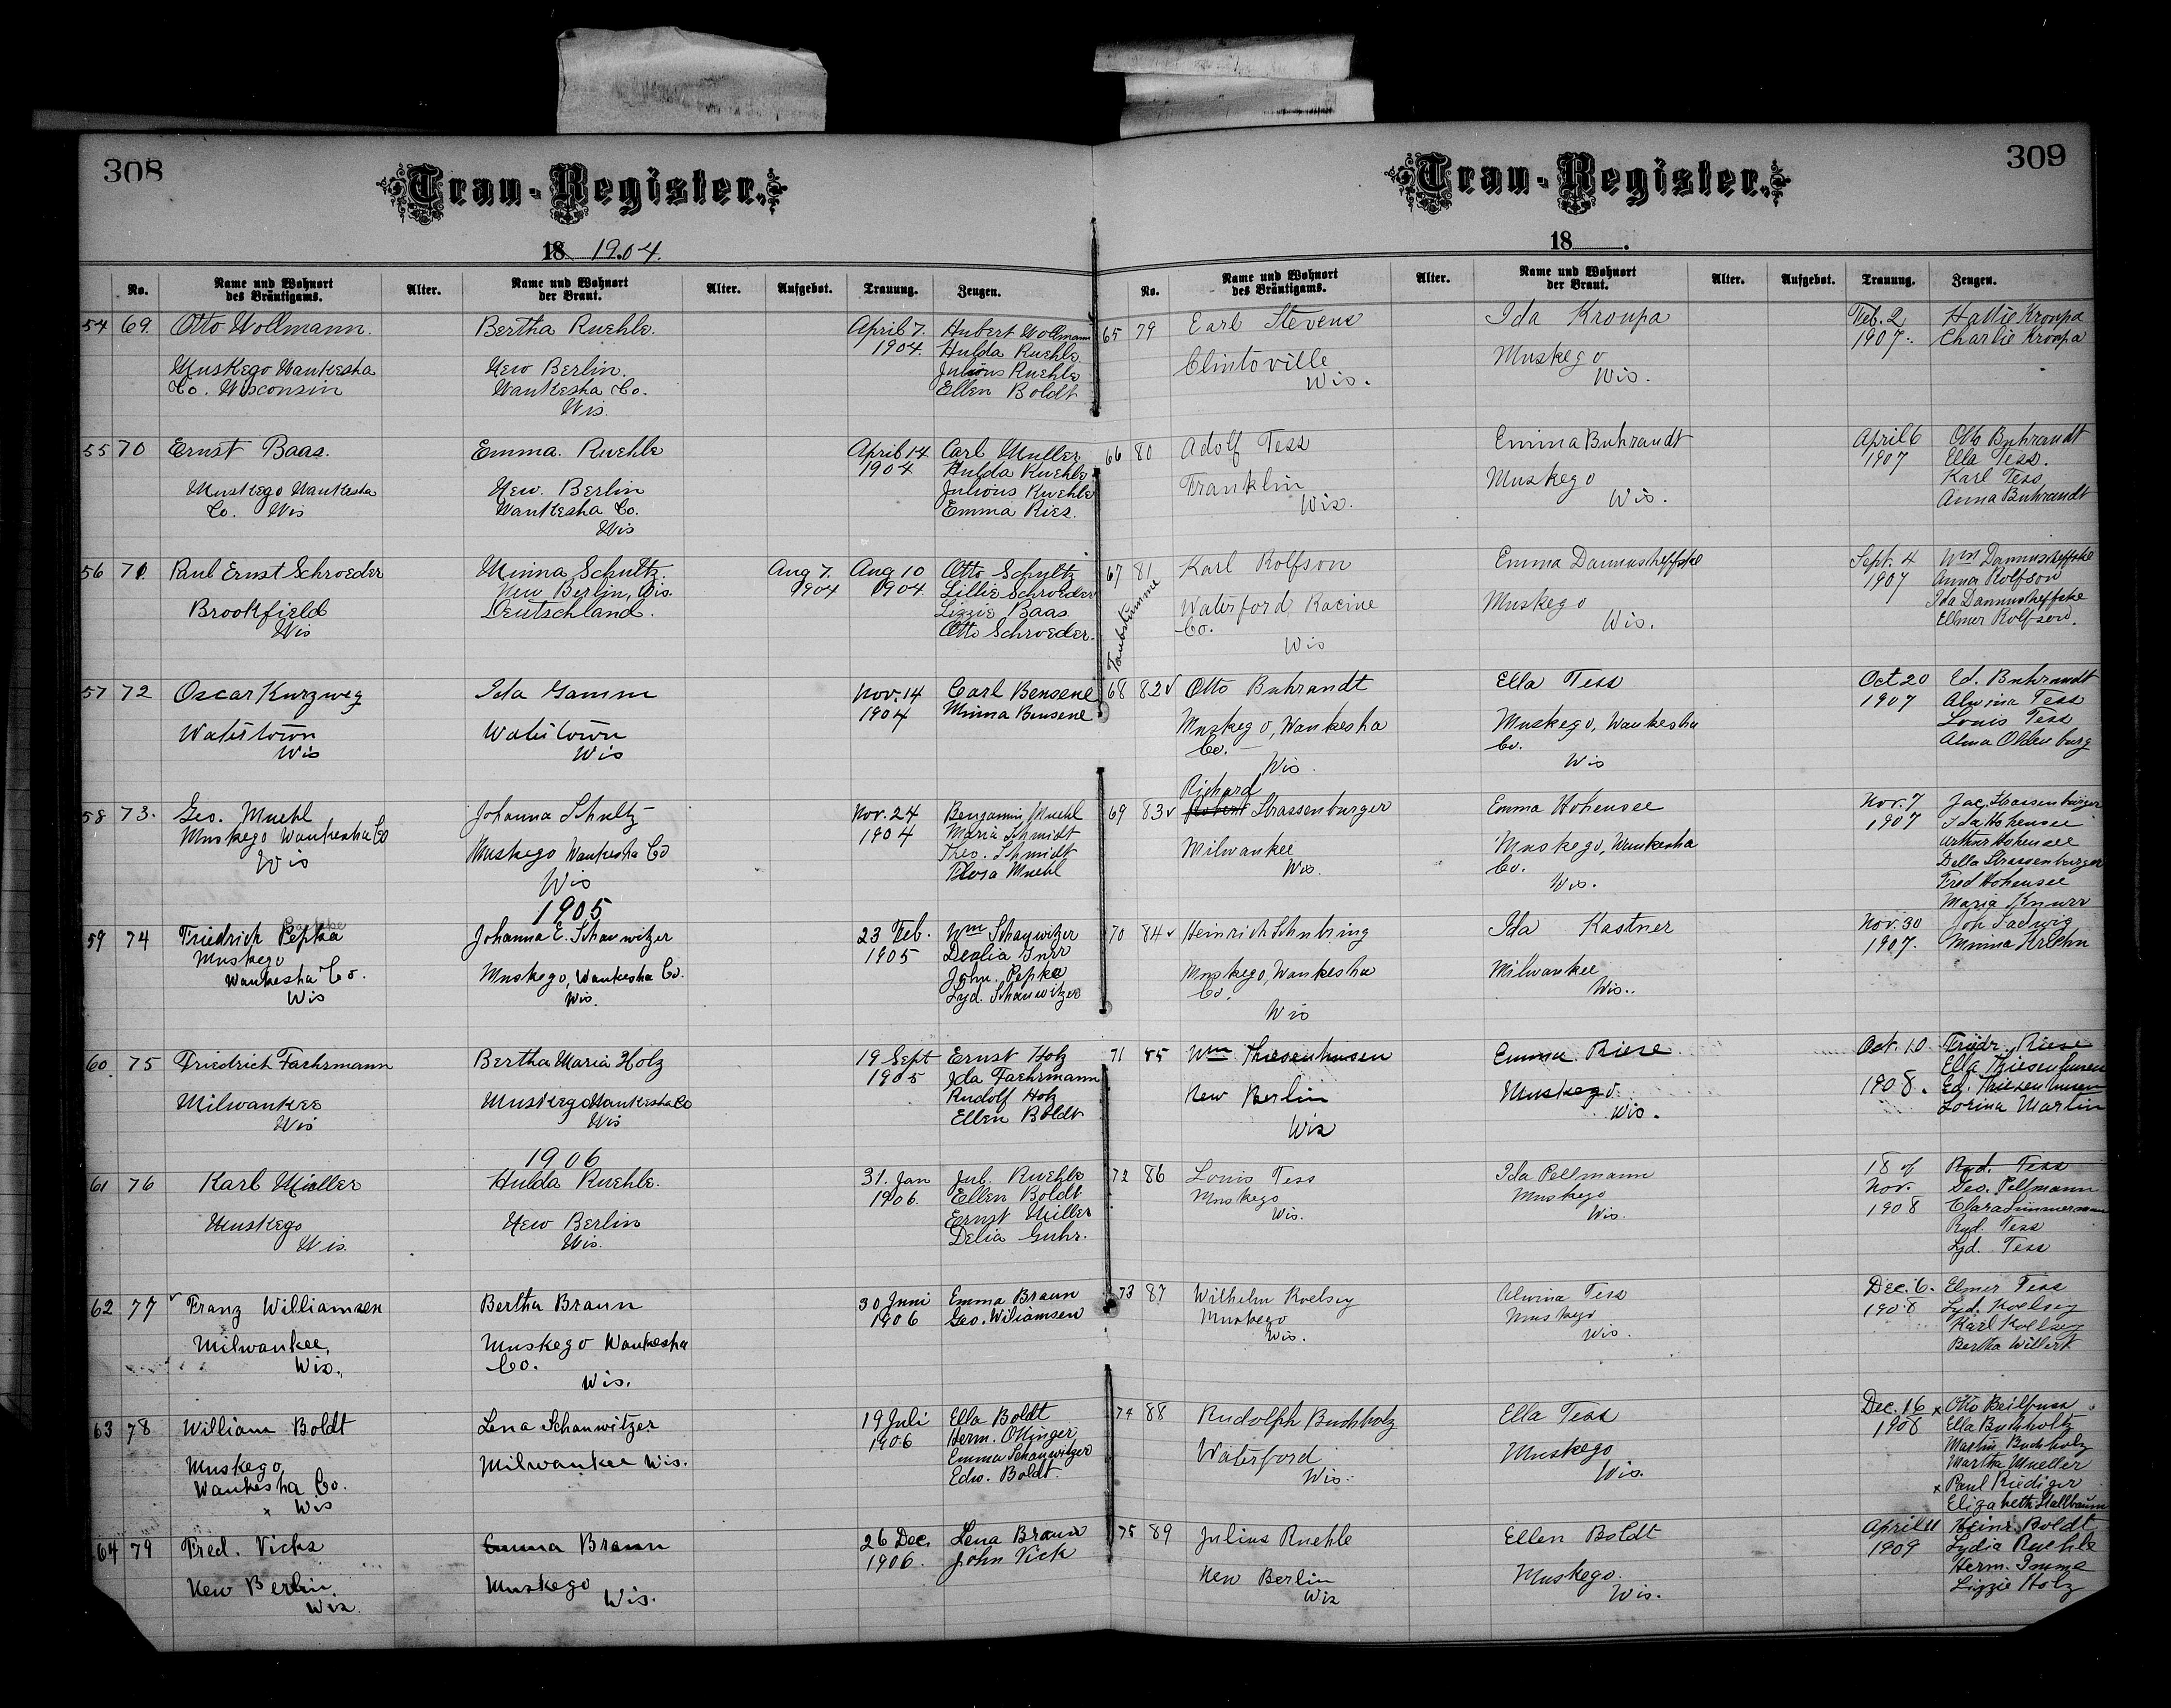 308
Trau-Register.
18 1904.
No. Name und Wohnort des Bräutigams. Alter. Name und Wohnort der Braut. Alter. Aufgebot. Trauung. Zeugen.
54 69. Otto Wollmann. Bertha Ruehle. April 7. Hubert Wollmann
1904. Hulda Ruehle
Muskego Waukesha New Berlin. Julious Ruehle
Co. Wisconsin Waukesha Co. Ellen Boldt
Wis.
55 70 Ernst Baas. Emma. Ruehle April 14 Carl Muller
1904 Hulda Ruehle
Muskego Waukesha New. Berlin Julious Ruehle
Co. Wis Waukesha Co. Emma Ries.
Wis
56 71. Paul Ernst Schroeder Minna Schultz. Aug 7. Aug 10 Otto Schultz
New Berlin, Wis. 1904 1904. Lillie Schroeder
Brookfield Deutschland. Lizzie Baas
Wis Otto Schroeder.
57 72 Oscar Kurzweg Ida Gamm Nov. 14 Carl Bensene
1904 Minna Bensene
Watertown Watertown
Wis Wis
58 73. Geo. Muehl Johanna Schultz Nov. 24 Benjamin Muehl
Muskego Waukesha Co 1904 Maria Schmidt
Wis Muskego Waukesha Co Theo. Schmidt
Wis Rosa Muehl
1905
59 74 Friedrich Pepka Johanna E. Schauwitzer 23 Feb. Wm Schauwitzer
Muskego 1905
Waukesha Co. Muskego, Waukesha Co. John. Pepka
Wis Wis. Lyd. Schauwitzer
60 75 Friedrich Faehrmann Bertha Maria Holz 19 Sept Ernst Holz
1905 Ida Faehrmann
Milwaukee Muskego Waukesha Co Rudolf Holz
Wis Wis Ellen Boldt
1906
61 76 Karl Müller Hulda Ruehle. 31. Jan Jul. Ruehle
1906. Ellen Boldt
Muskego New Berlin Ernst Miller
Wis. Wis. Delia Guhr.
62 77 Franz Williamsen Bertha Braun 30 Juni Emma Braun
1906 Geo. Wiliamsen
Milwaukee, Muskego Waukesha
Wis. Co.
Wis.
63 78 William Boldt Lena Schauwitzer 19 Juli Ella Boldt
1906 Herm. Ollinger
Muskego Milwaukee Wis. Emma Schauwitzer
Waukesha Co. Edw. Boldt.
x Wis
64 79 Fred. Vicks Emma Braun 26 Dec. Lena Braun
1906. John Vick
New Berlin, Muskego
Wis. Wis.
309
Trau-Register.
18 .
No. Name und Wohnort des Bräutigams. Alter. Name und Wohnort der Braut. Alter. Aufgebot. Trauung. Zeugen.
65 79 Earl Stevens Ida Kroupa Feb. 2 Hattie Kroupa
1907. Charlie Kroupa
Clintoville Muskego
Wis. Wis.
66 80 Adolf Tess Emma Buhrandt April 6 Otto Buhrandt
1907 Ella Tess.
Franklin Muskego Karl Tess
Wis. Wis. Anna Buhrandt
67 81 Karl Rolfson Emma Dannusheffske Sept. 4 Wm Dannusheffske
1907 Anna Rolfson
Taubstumme Waterford Racine Muskego Ida Dannusheffske
Co. Wis. Ellmer Rolfson.
Wis
68 82 Otto Buhrandt Ella Tess Oct 20 Ed. Buhrandt
1907 Alwina Tess
Muskego, Waukesha Muskego, Waukesha Louis Tess
Co. Co. Alma Oldenburg
Wis. Wis
Richard
69 83 Robert Strassenburger Emma Hohensee Nov. 7 Jac. Strassenburger
1907 Ida Hohensee
Milwaukee Muskego, Waukesha Arthur Hohensee
Wis. Co. Della Strassenburger
Wis. Fred Hohensee
Maria Knurr
70 84 Heinrich Schubring Ida Kastner Nov. 30 Joh Sadwig
1907. Minna Krehn
Muskego, Waukesha Milwaukee
Co. Wis.
Wis
71 85 Wm Thiesenhusen Emma Riese Oct. 10 Friedr. Riese
Ella Thiesenhusen
New Berlin Muskego 1908. Ed. Thiesenhusen
Wis Wis. Lorina Martin
72 86 Louis Tess Ida Pellmann 18 of Rud. Tess
Muskego Muskego Nov. Geo. Pellmann
Wis. Wis. 1908 Clara Zimmermann
Rud. Tess
Lyd. Tess
73 87 Wilhelm Koelsey Alwina Tess Dec. 6. Elmer Tess
Muskego Muskego 1908 Lyd. Koelsey
Wis. Wis. Karl Koelsey
Bertha Willert
74 88 Rudolph Buchholz Ella Tess Dec. 16 x Otto Beilfuss
1908 Ella Buchholtz
Waterford Muskego Martin Buchholz
Wis. Wis. Martha Mueller
x Paul Riediger
Elizabeth Stallbaum
75 89 Julius Ruehle Ellen Boldt April 11 Heinr. Boldt
1909 Lydia Ruehle
New Berlin Muskego. Herm. Imme
Wis Wis. Lizzie Holz